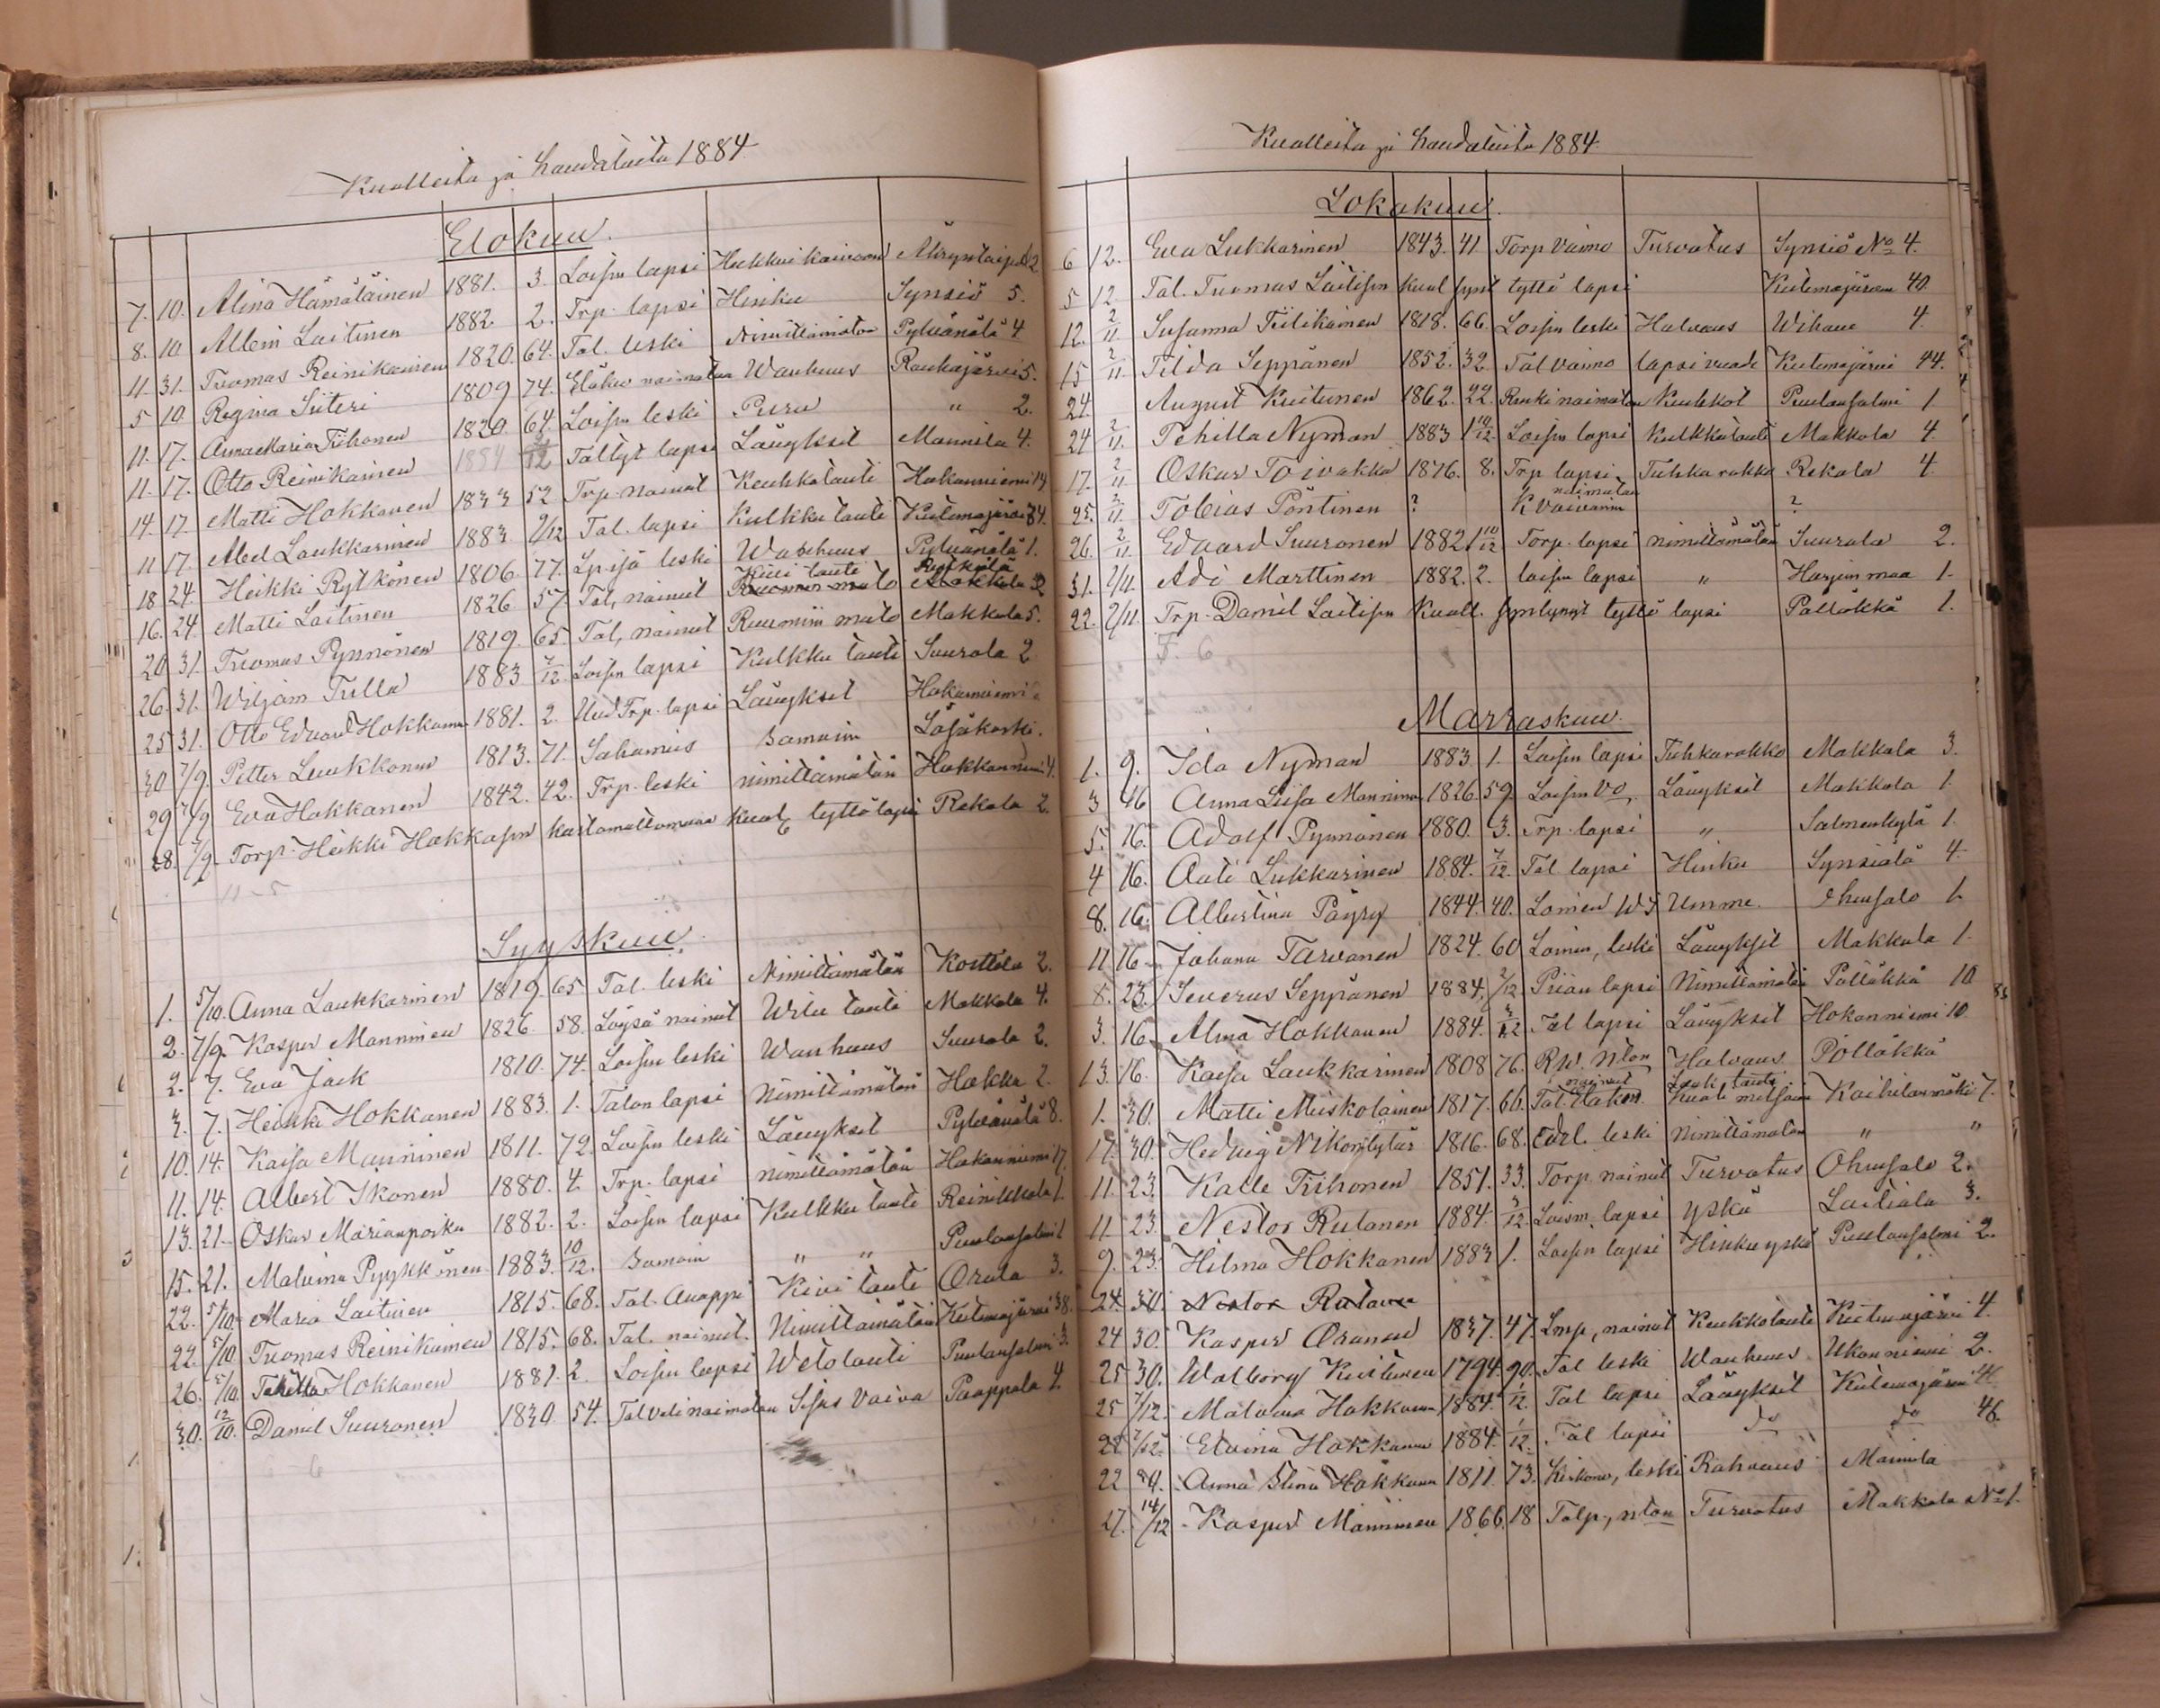 Kuolleita ja haudatuita 1884
Elokuu.
7. 10. Alina Hämäläinen 1881. 3. Loisen lapsi
8. 10 Albin Laitinen 1882 2. Trp. lapsi Hinku Synsiö 5.
11. 31. Tuomas Reinikainen 1820. 64. Tal. leski Nimittämätön Pylvänälä 4
5 10. Regina Siiteri 1809 74. Wanhuus Rauhajärvi 5.
11. 17. Anna Maria Tiihonen 1820. 64. Loisen leski " 2.
11. 17. Otto Reinikainen 1884 Tällyt lapsi Läügksit Mannila 4.
14. 17. Matti Hokkanen 1833 52 Trp. nainut Keuhkotauti Hokanniemi 14
11 17. Abel Laukkarinen 1883. 7/12 Tal. lapsi Kulkku tauti Kutemajärvi 34.
18 24. Heikki Rytkönen 1806. 77. Lp. isä leski Wanhuus Pylvänälä 1.
16. 24. Matti Laitinen 1826 57. Tal, nainut Kiwi tauti
20 31. Tuomas Pynnönen 1819. 65. Tal, nainut Ruumiin mato Makkola 5.
26. 31. Wiljam Tulla 1883 7/12 Loisen lapsi Kulkku tauti Suurola 2
25 31. Otto Eduard Hokkanen 1881. 2. Uud Trp. lapsi Läügksit Hokanniemi
30 7/9. Petter Luukkonen 1813. 71. Sahamies Samoin Läsäkoski.
29 7/9 Eva Hokkanen 1842. 42. Trp. leski nimittämätön Hokkanniemi 4.
28. 7/9. Torp. Heikki Hokkasen kastamattomana kuol tyttö lapsi Rekola 2.
11-5
Syyskuu.
1. 5/10. Anna Laukkarinen 1819. 65. Tal. leski Nimittämätön Kottila 2.
2. 7/9. Kasper Manninen 1826. 58. Löysä nainut Wilu tauti Makkola 4.
2. 7. Eva Jäck 1810. 74. Loisen leski Wanhuus Suurola 2.
3. 7. Heikki Hokkanen 1883. 1. Talon lapsi Nimittämätön Hokka 2.
10. 14. Kaisa Manninen 1811. 72. Loisen leski Läügksit Pylvänälä 8.
11. 14. Albert Ikonen 1880. 4. Trp. lapsi nimittämätön Hokanniemi 17.
13. 21. Oskar Marianpoika 1882. 2. Loisen lapsi Kulkku tauti Reinikkala 1.
15. 21. Malvina Pyykkönen 1883. 10/12. Samoin " " Puulansalmi 1
22. 5/10. Maria Laitinen 1815. 68. Tal. Anoppi Kivi tauti Orala 3.
22. 5/10. Tuomas Reinikainen 1815. 68. Tal. nainut. Nimittämätön Kutemajärvi 38.
26. 5/10. Tahilla Hokkanen 1881. 2. Loisen lapsi Wetotauti Puulansalmi 3.
30. 12/10. Daniel Suuronen 1830 54. Tal veli naimaton Sisus vaiva Paappala 4.
6-6
Kuolleita ja haudatuita 1884.
Lokakuu.
6 12. Eva Lukkarinen 1843. 41 Torp vaimo Turvotus Synsiö No 4.
5 12. Tal. Tuomas Laitisen kuol synt tyttö lapsi Kutemajärvi 40.
12. 2/11 Susanna Tiilikainen 1818. 66. Loisen leski Halvaus Wihava 4.
15 2/11. Tilda Seppänen 1852. 32. Tal vaimo lapsi vuode Kutemajärvi 44.
24. August Kuitunen 1862. 22. Renki naimaton Keuhkot Puulansalmi 1
24 2/11. Tehilla Nyman 1883 1 10/12. Loisen lapsi Kulkkutauti Makkola 4.
17. 2/11 Oskar Toivakka 1876. 8. Trp lapsi Tuhkarokko Rekola 4.
25. 2/11. Tobias Pöntinen ? naimaton K vaivainen ?
26. 2/11 Eduard Suuronen 1882 1 10/12 Torp. lapsi nimittämätön Suurola 2.
31. 2/11 Adi Marttinen 1882. 2. loisen lapsi " Harjunmaa 1.
22. 2/11. Trp. Daniel Laitisen kuoll. syntynyt tyttö lapsi Pölläkkä 1.
5. 6
Marraskuu.
1. 9. Ida Nyman 1883. 1. Loisen lapsi Tuhkarokko Makkola 3.
3 16 Anna Liisa Manninen 1826. 59. Loisen vo, Läügksit Makkola 1.
5. 16. Adolf Pynnönen 1880. 3. Trp. lapsi " Salmenkylä 1.
4 16. Aati Lukkarinen 1884. 7/12. Tal lapsi Hinku Synsiälä 4.
8. 16. Albertina Päyry 1844. 40. Loinen Umme. Ohensalo 1.
11 16 Johana Tarvanen 1824. 60 Loinen, leski Läügksit Makkola 1.
8. 23. Severus Seppänen 1884. 2/12 Piian lapsi Nimittämätön Pölläkkä 10
3. 16. Alma Hokkanen 1884. Tal lapsi Läügksit Hokanniemi 10
13. 16. Kaisa Laukkarinen 1808 76. Rw. nton Halvaus Pölläkkä
1. 30. Matti Muskolainen 1817. 66. nainut Kuoli metsään Kaihilanmäki 7.
17. 30. Hedvig 1816. 68. leski Nimittämätön " "
11. 23. Kalle Tiihonen 1851. 33. Torp. nainut Turvotus Ohensalo 2.
11 23. Nestor Rutanen 1884. 3/12 Loisen lapsi yskä Laitiala 3.
9. 23. Hilma Hokkanen 1883 1. Loisen lapsi Hinku yskä Puulansalmi 2.
24. 30. Nestor Rutanen
24 30. Kasper Oranen 1837. 47 Lmp, nainut Keuhkotauti Kutemajärvi 4.
25 30. Walborg Kuitunen 1794. 90. Tal leski Wanhuus Ukonniemi 2.
25 7/12. Malvina Hokkanen 1884. 1/12. Tal lapsi Läügksit Kutemajärvi
22 7/12. Elvina Hokkanen 1884. 1/12. Tal lapsi do do 46.
22 Anna Stina Hokkanen 1811. 73. leski Rahvaus Mainila
27. 14/12 Kasper Manninen 1866. 18 Talp., nton Turvotus Makkola No 1.